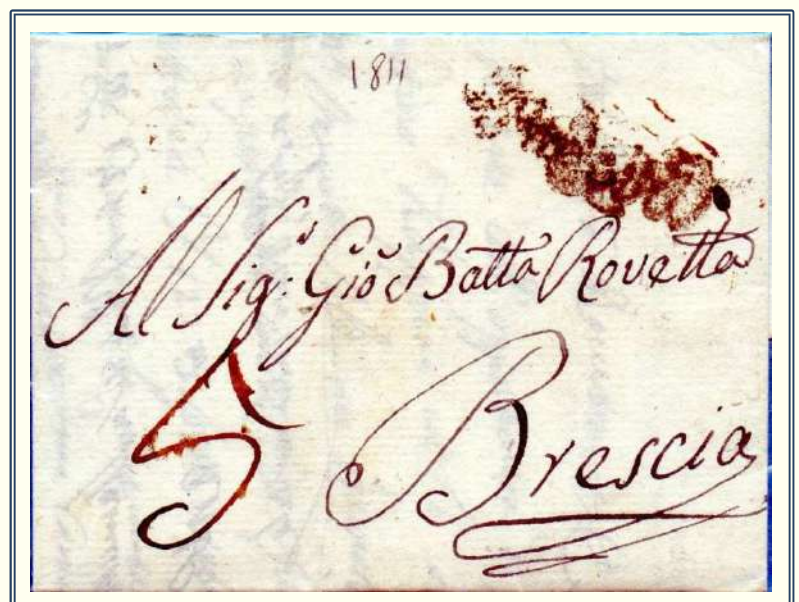 1811
Al Sig.r Giõ Batta Rovetta
5
Brescia